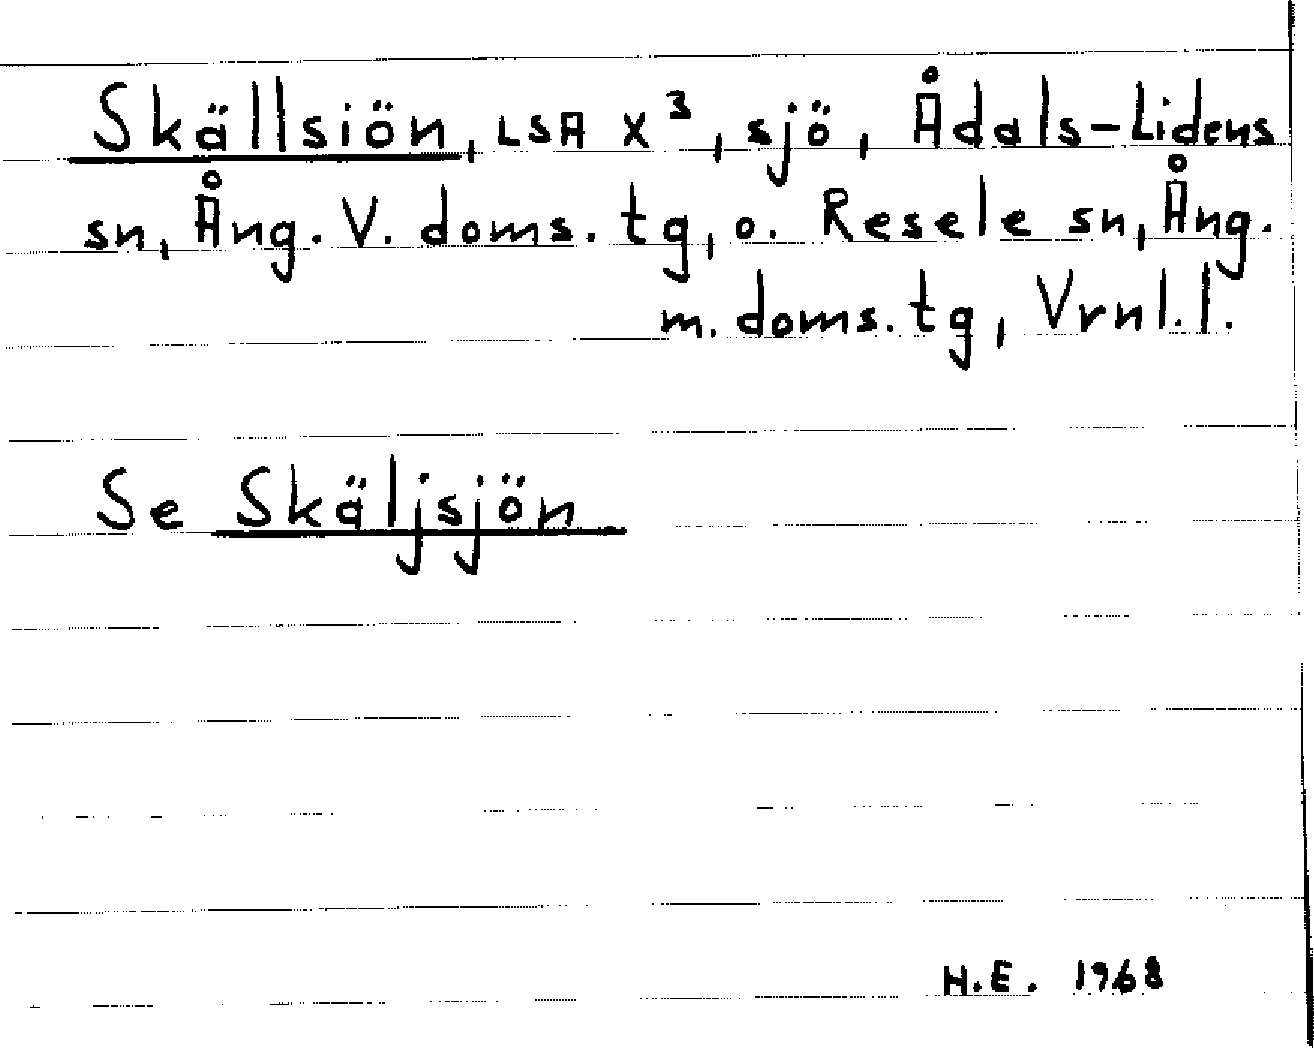 Skällsiön, LSA X³, sjö, Ådals-Lidens
sn, Ång. V. doms. tg, o. Resele sn, Ång.
m. doms. tg, Vrnl.l.
Se Skäljsjön
H.E. 1968